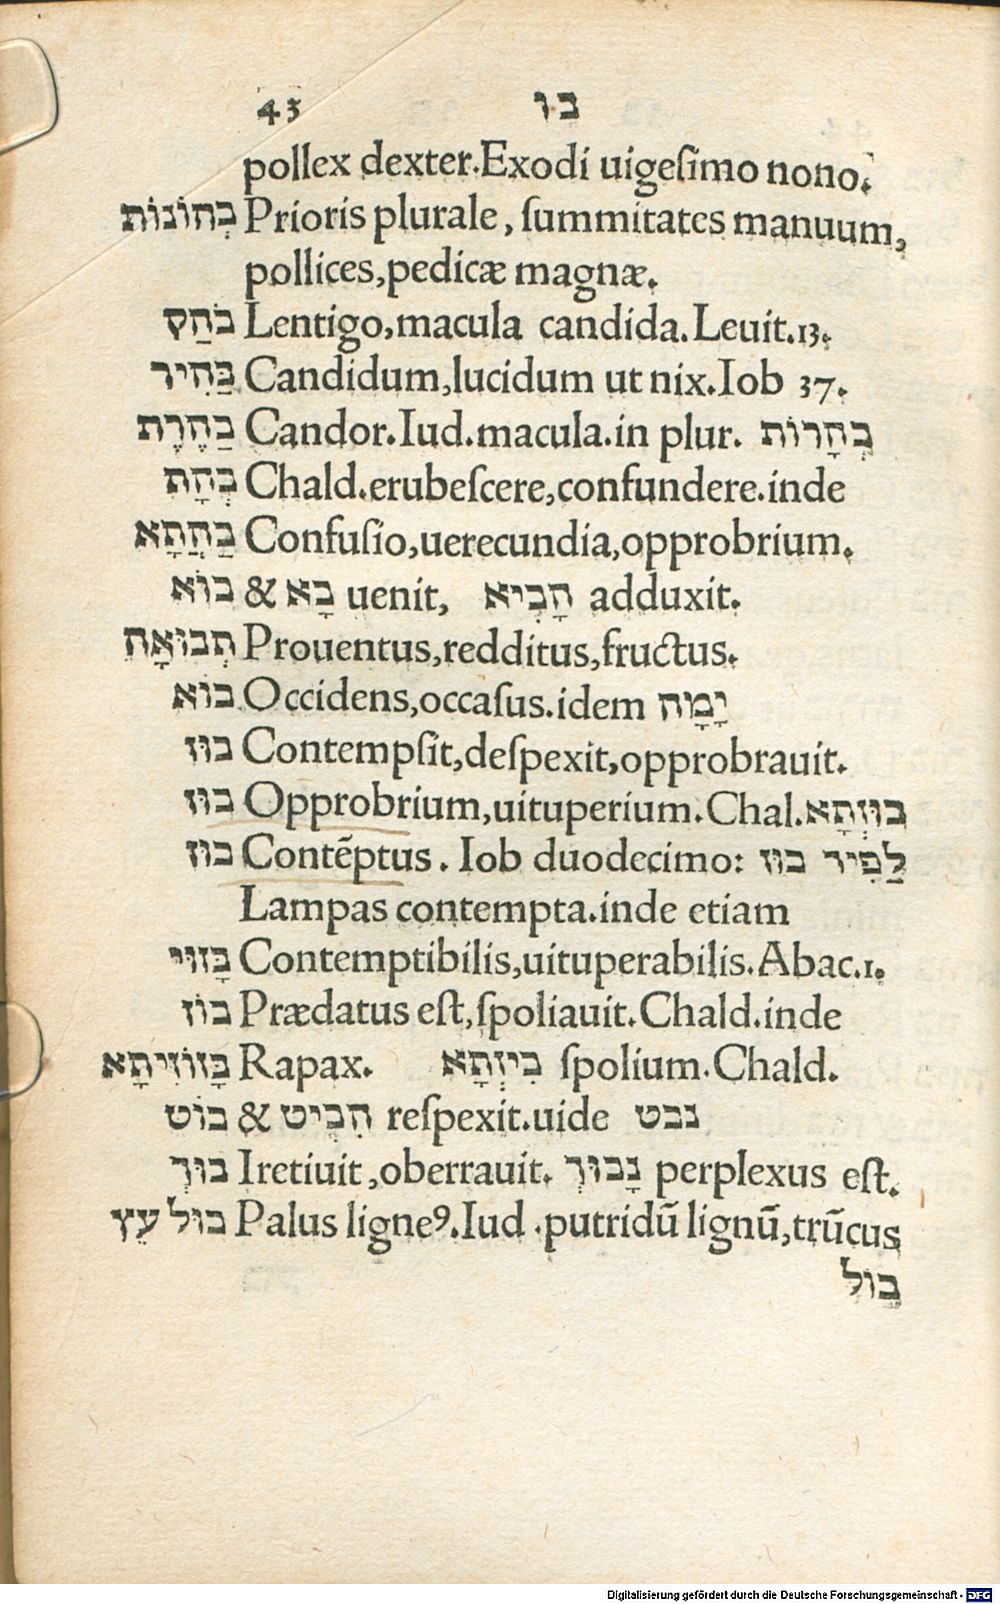 43 בו
pollex dexter. Exodi uigeſimo nono.
בְּהוֹנוֹת Prioris plurale, ſummitates manuum,
pollices, pedicæ magnæ.
בֹּהַק Lentigo, macula candida. Leuit. 13.
בַּהִיר Candidum, lucidum ut nix. Iob 37.
בַּהֶרֶת Candor. Iud. macula. in plur. בְּהָרוֹת
בְּהָת Chald. erubeſcere, confundere. inde
בַּהֲתָא Confuſio, uerecundia, opprobrium.
בוֹא & בָּא uenit, הֵבִיא adduxit.
תְבוּאָה Prouentus, redditus, fructus.
בוֹא Occidens, occaſus. idem יָמָּה
בוּז Contempſit, deſpexit, opprobrauit.
בוּז Opprobrium, uituperium. Chal. בוּזְתָא
בוּז Contēptus. Iob duodecimo: לַפִּיד בוּז
Lampas contempta. inde etiam
בָּזוּי Contemptibilis, uituperabilis. Abac. 1.
בוֹז Prædatus eſt, ſpoliauit. Chald. inde
בָּזוֹזִיתָא Rapax. בִיזְתָא ſpolium. Chald.
בוֹט & הִבִּיט reſpexit. uide נבט
בוּךְ Iretiuit, oberrauit. נָבוּךְ perplexus eſt.
בוּל עֵץ Palus ligneꝰ. Iud. putridū lignū, trūcus
בוּל
Digitalisierung gefördert durch die Deutsche Forschungsgemeinschaft - DFG